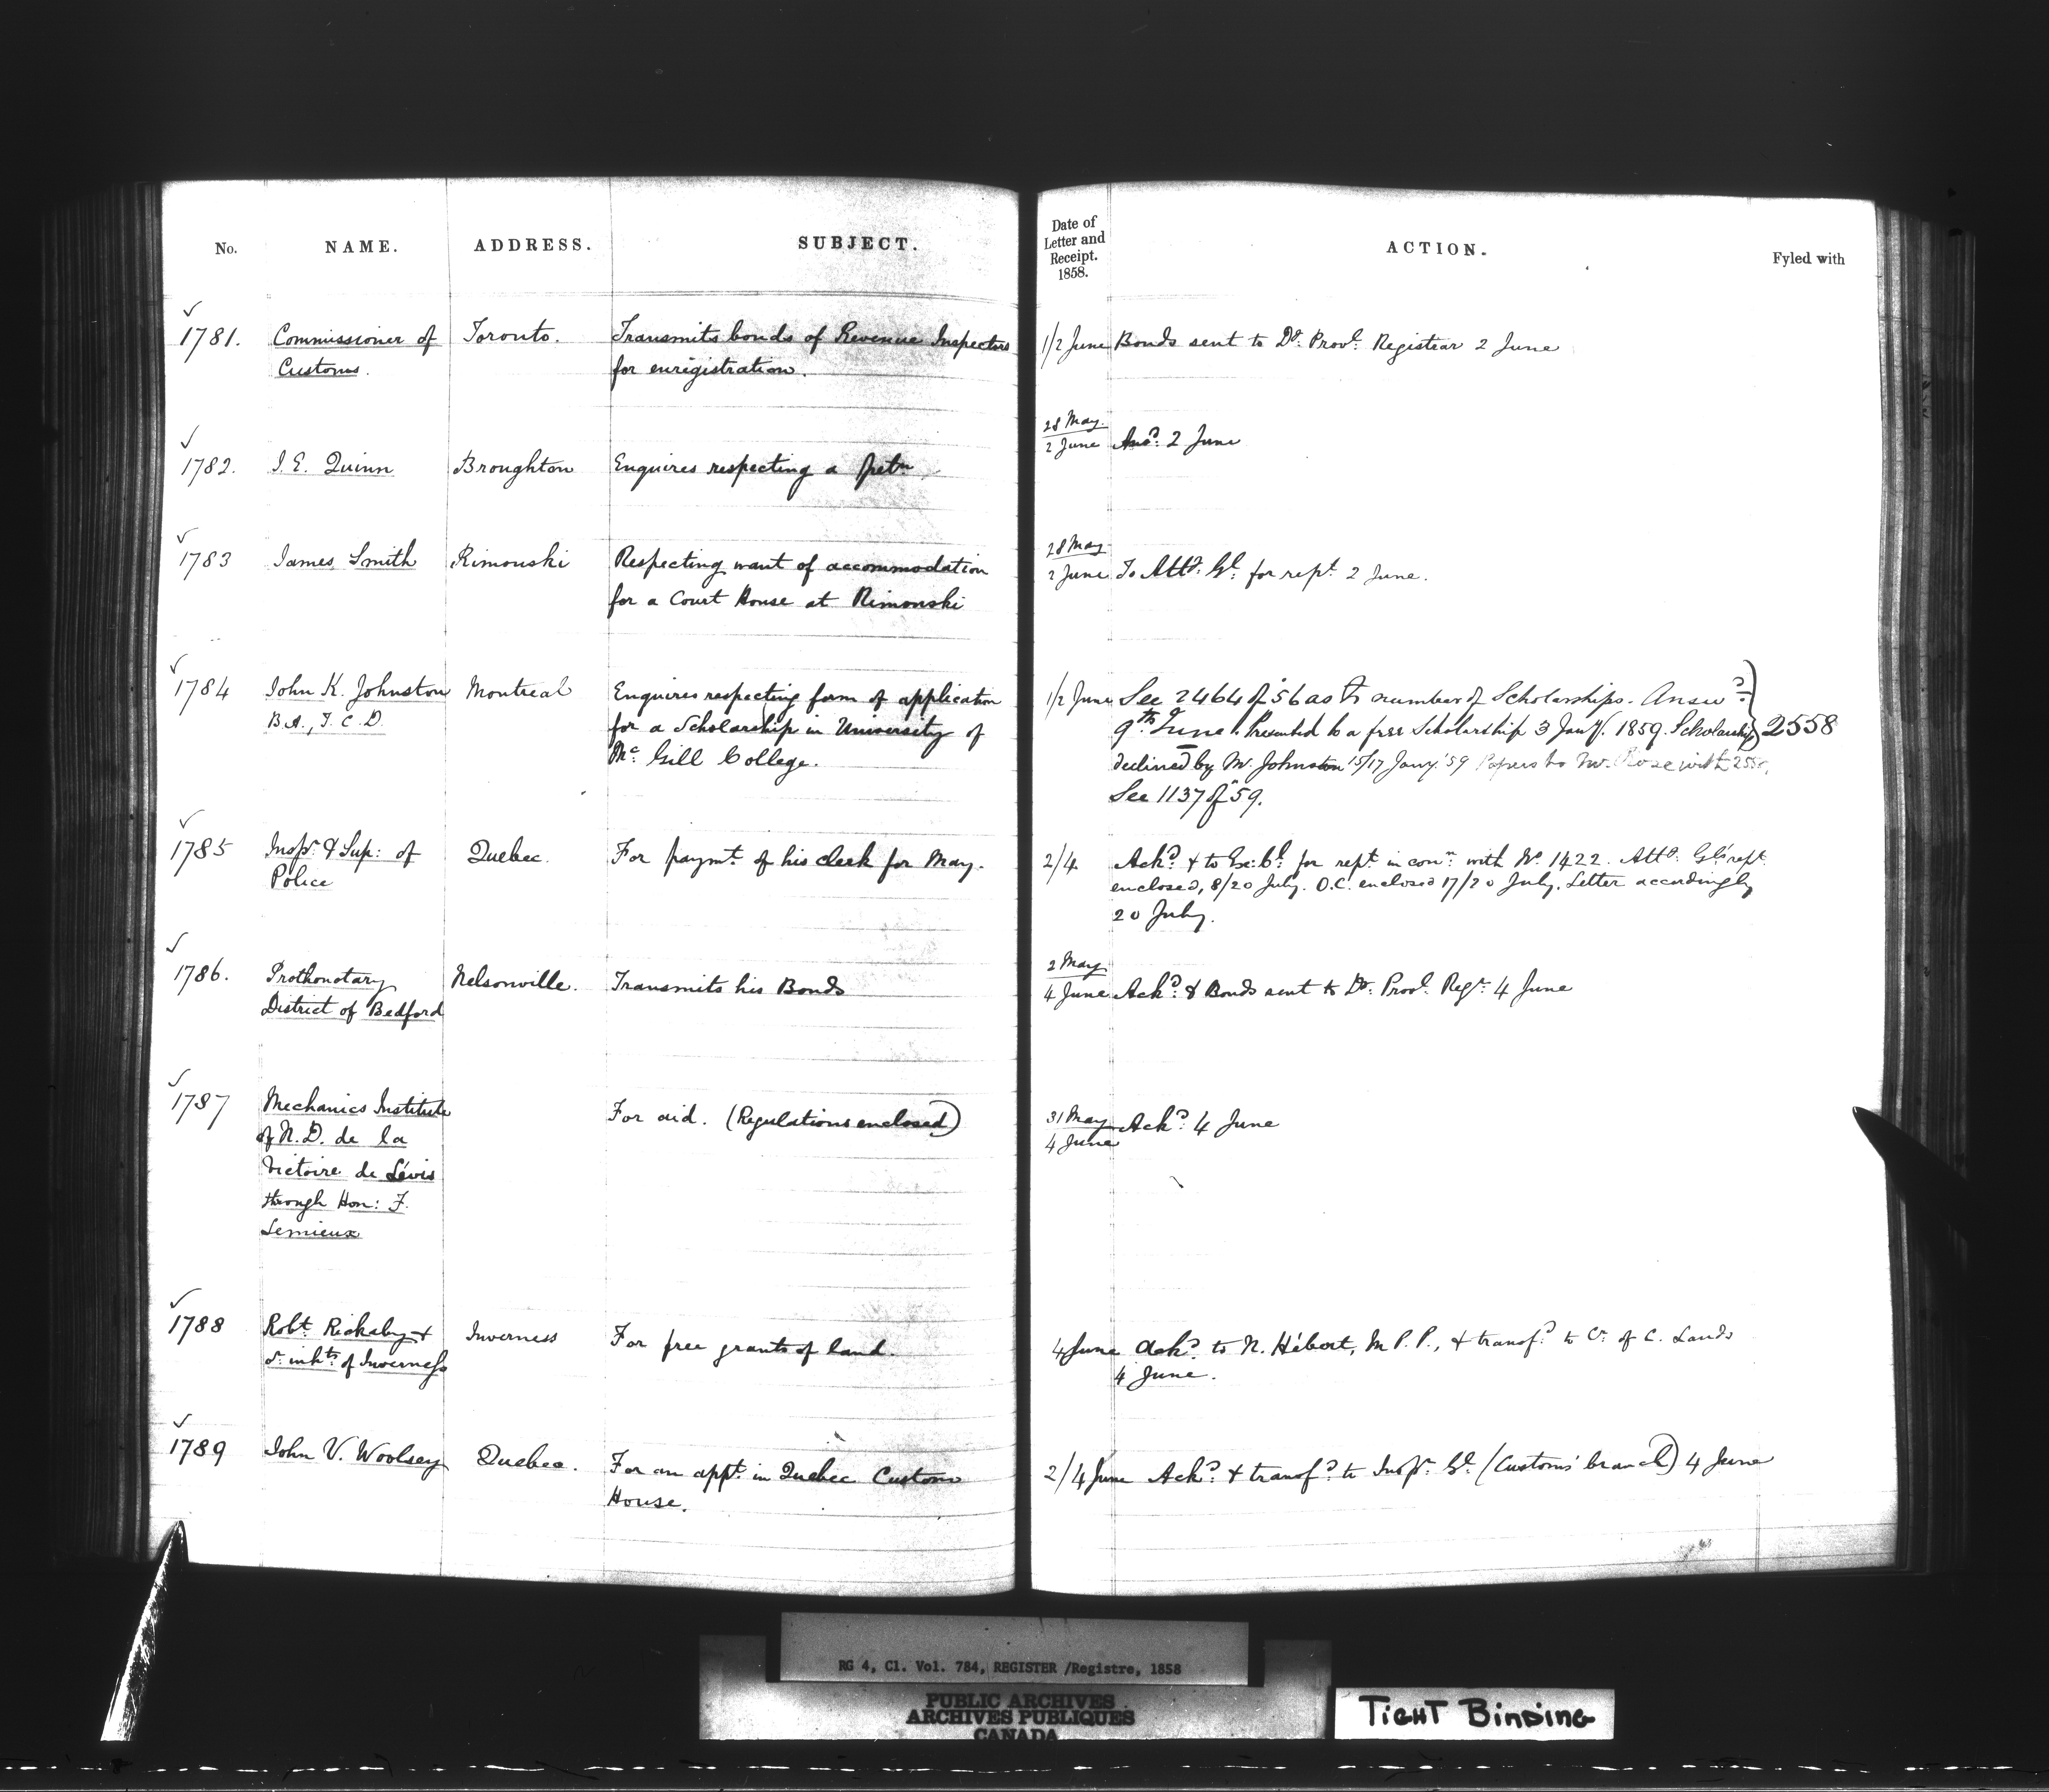 No. NAME. ADDRESS. SUBJECT. Date of Letter and Receipt. 1858. ACTION. Fyled with
1781. Commissioner of Toronto. Transmits bonds of Revenue Inspectors 1/2 June Bonds sent to Dy. Provl. Registrar 2 June
Customs. for enregistration.
28 May
1782. I. E. Quinn Broughton Enquires respecting a petn. 2 June Ansd. 2 June
28 May
1783 James Smith Rimouski Respecting want of accommodation 2 June To Atty. Gl. for rept. 2 June.
for a Court House at Rimouski
1784 John K. Johnston Montreal Enquires respecting form of application 1/2 June See 2464 of '56 as to number of Scholarships. Answd.
B.A., T.C.D. for a Scholarship in University of 9th June. Presented to a free Scholarship 3 Jany. 1859. Scholarship 2558
McGill College. declined by Mr. Johnston 15/17 Jany. '59 Papers to Mr. Rose with 2558.
See 1137 of '59.
1785 Inspr. & Sup: of Quebec. For paymt. of his clerk for May. 2/4 Ackd. & to Ex: Cl. for rept. in conn. with No. 1422. Atty. Gl's rept.
Police enclosed, 8/20 July. O.C. enclosed 17/20 July. Letter accordingly
20 July.
2 May
1786. Prothonotary Nelsonville. Transmits his Bonds 4 June Ackd. & Bonds sent to Dy. Provl. Regr. 4 June
District of Bedford
1787 Mechanics Institute For aid. (Regulations enclosed) 31 May Ackd. 4 June
of N. D. de la 4 June
Victoire de Lévis
through Hon: F.
Lemieux
1788 Robt. & Inverness For free grants of land. 4 June Ackd. to N. Hébert, M.P.P., & transfd. to Cr. of C. Lands
or. inhts. of Inverness 4 June.
1789 John V. Woolsey Quebec. For an appt. in Quebec Custom 2/4 June Ackd. & transfd. to Inspr. Gl. (Customs' branch) 4 June
House.
RG 4, C1. Vol. 784, REGISTER /Registre, 1858
PUBLIC ARCHIVES
ARCHIVES PUBLIQUES
CANADA
TIGHT BINDING